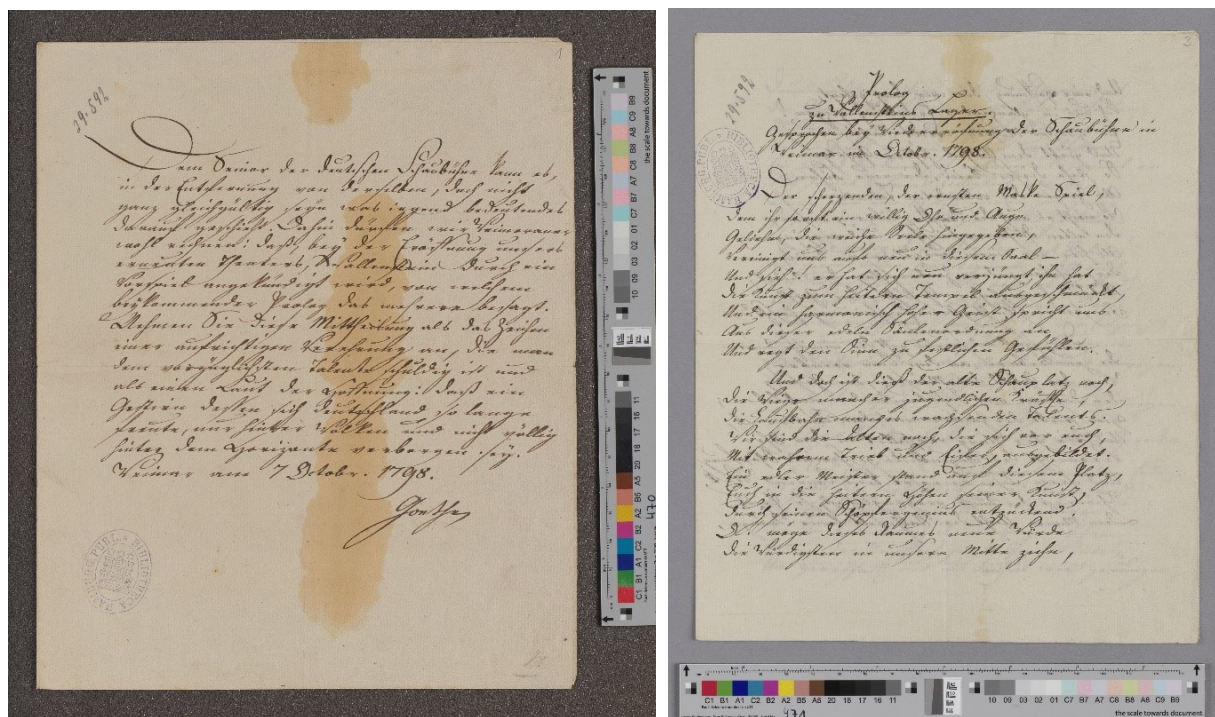 29.592
Dem Senior der deutschen Schaubühne kann es,
in der Entfernung von derselben, doch nicht
ganz gleichgültig seyn was irgend bedeutendes
darauf geschieht. Dahin dürfen wir Weimaraner
wohl rechnen: daß bey der Eröffnung unsers
erneuten Theaters, Wallenstein durch ein
Vorspiel angekündigt wird, von welchem
beykommender Prolog das mehrere besagt.
Nehmen Sie diese Mittheilung als das Zeichen
einer aufrichtigen Verehrung an, die man
dem vorzüglichsten Talente schuldig ist und
als einen Laut der Hoffnung: daß ein
Gestirn dessen sich Deutschland so lange
freute, nur hinter Wolken und nicht völlig
hinter dem Horizonte verborgen sey.
Weimar am 7 Octobr. 1798.
Goethe
the scale towards document
10 09 03 02 01 C7 B7 A7 C8 B8 A8 C9 B9
C1 B1 A1 C2 B2 A2 B5 A5 20 18 17 16 11
470
29.592
Prolog
zu Wallensteins Lager.
Gesprochen bey Wiedereröffnung der Schaubühne in
Weimar im Octobr. 1798.
Der scherzenden, der ernsten Maske Spiel,
Dem ihr so oft ein willig Ohr und Auge
Geliehn, die weiche Seele hingegeben,
Vereinigt uns aufs neu in diesem Saal –
Und sieh! er hat sich neu verjüngt, ihn hat
Die Kunst zum heitern Tempel ausgeschmückt,
Und ein harmonisch hoher Geist spricht uns
Aus dieser edeln Säulenordnung an,
Und regt den Sinn zu festlichen Gefühlen.
Und doch ist dieß der alte Schauplatz noch,
Die Wiege mancher jugendlichen Kräfte
Die Laufbahn manches wachsenden Talents.
Wir sind die Alten noch, die sich vor euch,
Mit warmem Trieb und Eifer, ausgebildet.
Ein edler Meister stand auf diesem Platz,
Euch in die heitern Höhen seiner Kunst,
Durch seinen Schöpfergenius entzückend
O! möge dieses Raumes neue Würde
Die Würdigsten in unsere Mitte ziehn,
C1 B1 A1 C2 B2 A2 B5 A5 20 18 17 16 11
10 09 03 02 01 C7 B7 A7 C8 B8 A8 C9 B9
the scale towards document
471